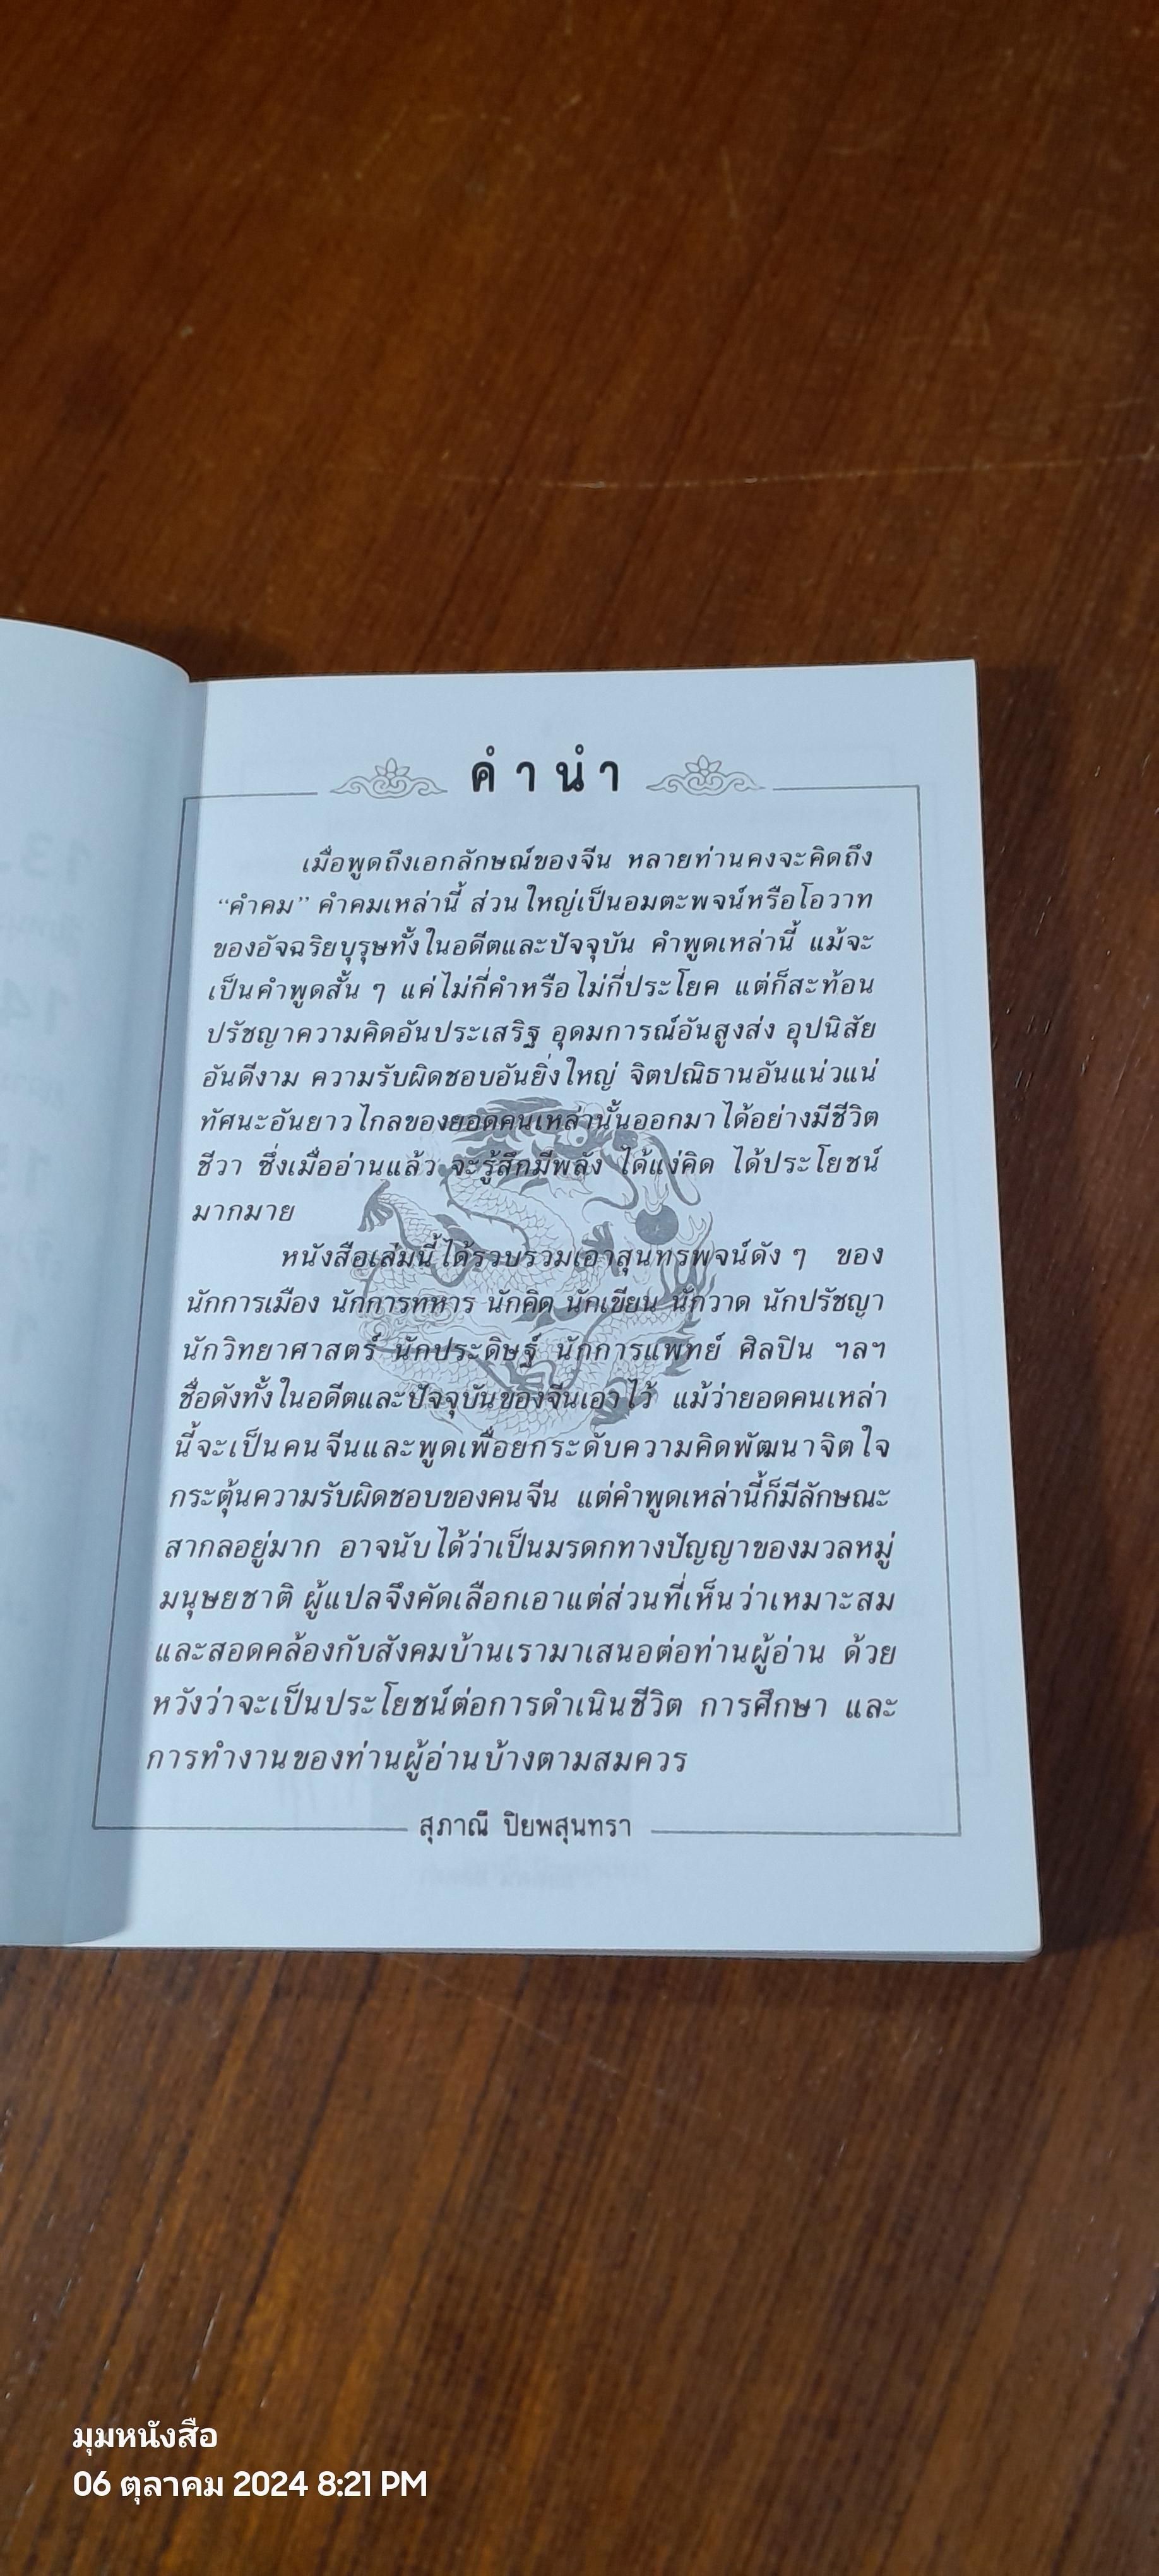 คำนำ
เมื่อพูดถึงเอกลักษณ์ของจีน หลายท่านคงจะคิดถึง
“คำคม” คำคมเหล่านี้ ส่วนใหญ่เป็นอมตะพจน์หรือโอวาท
ของอัจฉริยบุรุษทั้งในอดีตและปัจจุบัน คำพูดเหล่านี้ แม้จะ
เป็นคำพูดสั้น ๆ แค่ไม่กี่คำหรือไม่กี่ประโยค แต่ก็สะท้อน
ปรัชญาความคิดอันประเสริฐ อุดมการณ์อันสูงส่ง อุปนิสัย
อันดีงาม ความรับผิดชอบอันยิ่งใหญ่ จิตปณิธานอันแน่วแน่
ทัศนะอันยาวไกลของยอดคนเหล่านั้นออกมาได้อย่างมีชีวิต
ชีวา ซึ่งเมื่ออ่านแล้ว จะรู้สึกมีพลัง ได้แง่คิด ได้ประโยชน์
มากมาย
หนังสือเล่มนี้ได้รวบรวมเอาสุนทรพจน์ดัง ๆ ของ
นักการเมือง นักการทหาร นักคิด นักเขียน นักวาด นักปรัชญา
นักวิทยาศาสตร์ นักประดิษฐ์ นักการแพทย์ ศิลปิน ฯลฯ
ชื่อดังทั้งในอดีตและปัจจุบันของจีนเอาไว้ แม้ว่ายอดคนเหล่า
นี้จะเป็นคนจีนและพูดเพื่อยกระดับความคิดพัฒนาจิตใจ
กระตุ้นความรับผิดชอบของคนจีน แต่คำพูดเหล่านี้ก็มีลักษณะ
สากลอยู่มาก อาจนับได้ว่าเป็นมรดกทางปัญญาของมวลหมู่
มนุษยชาติ ผู้แปลจึงคัดเลือกเอาแต่ส่วนที่เห็นว่าเหมาะสม
และสอดคล้องกับสังคมบ้านเรามาเสนอต่อท่านผู้อ่าน ด้วย
หวังว่าจะเป็นประโยชน์ต่อการดำเนินชีวิต การศึกษา และ
การทำงานของท่านผู้อ่านบ้างตามสมควร
สุภาณี ปิยพสุนทรา
มุมหนังสือ
06 ตุลาคม 2024 8:21 PM